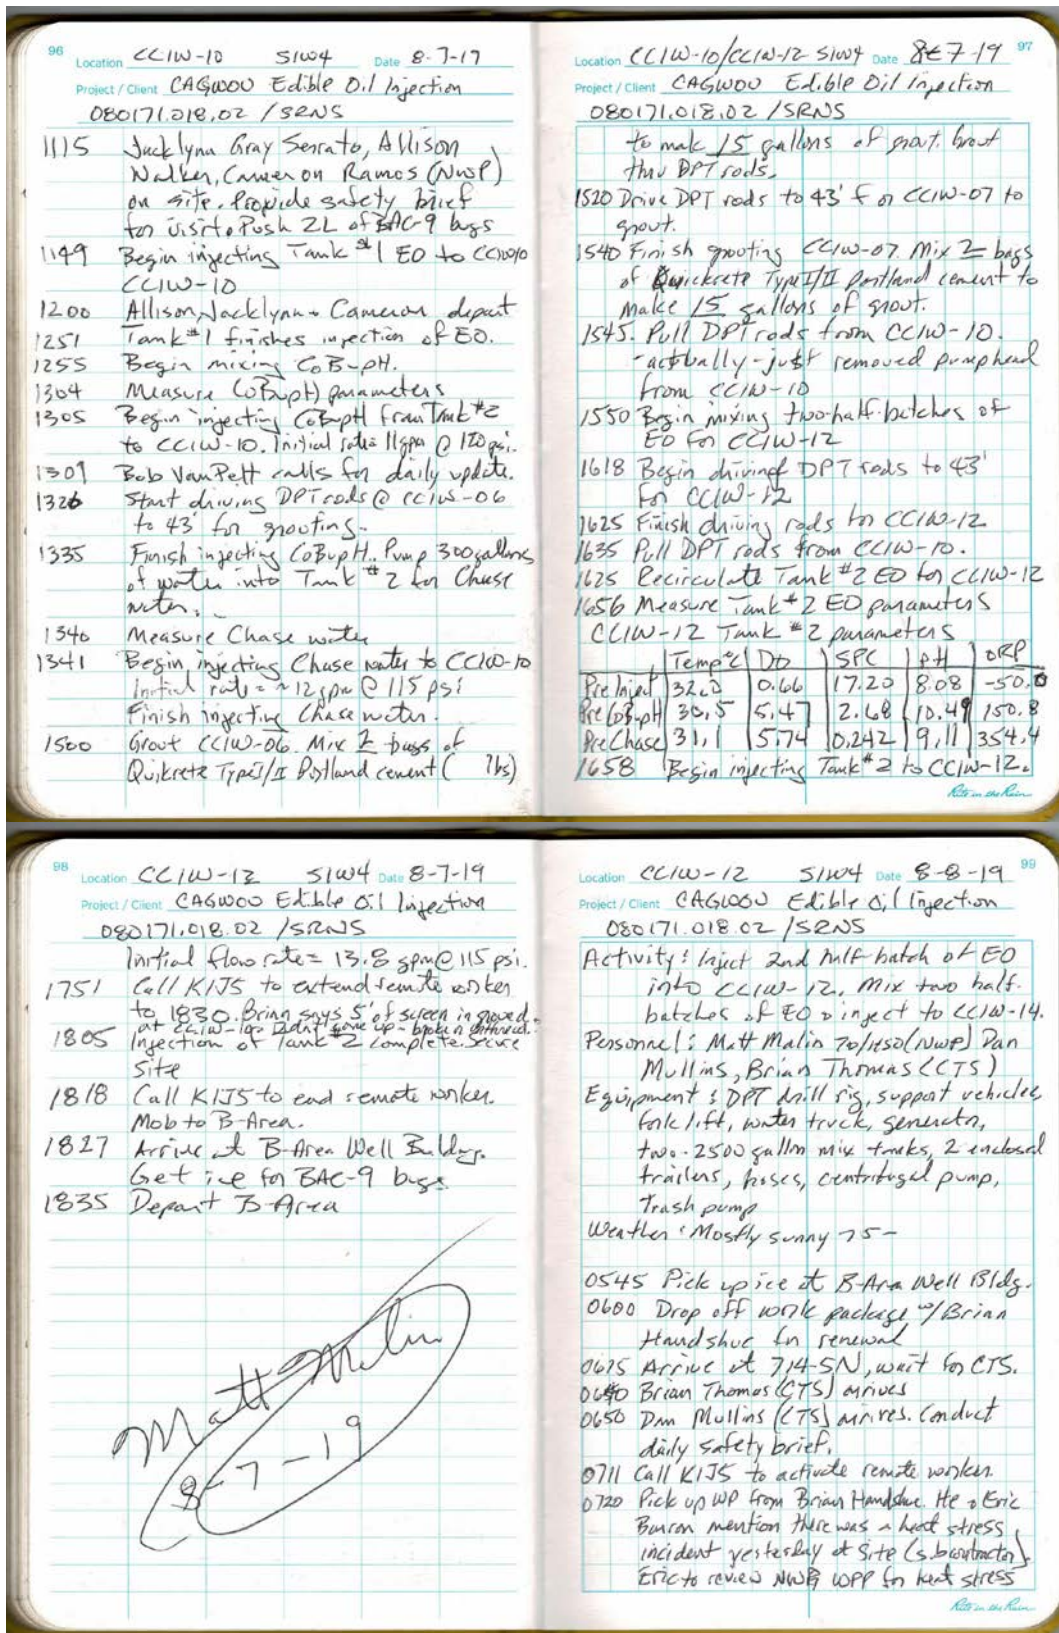 96
Location CCIW-10 SIW4 Date 8-7-19
Project / Client CAGWOU Edible Oil Injection
080171.018.02 / SRNS
1115 Jacklynn Gray Serrato, Allison
Walker, Cameron Ramos (NWP)
on site. Provide safety brief
for visit. Push 2L of BAC-9 bugs
1149 Begin injecting Tank #1 EO to
CCIW-10
1200 Allison, Jacklynn + Cameron depart
1251 Tank #1 finishes injection of EO.
1255 Begin mixing CoBupH.
1304 Measure CoBupH parameters
1305 Begin injecting CoBupH from Tank #2
to CCIW-10. Initial rate = 11gpm @ 120 psi.
1309 Bob VanPelt calls for daily update.
1326 Start driving DPT rods @ CCIW-06
to 43' for grouting.
1335 Finish injecting CoBupH. Pump 300 gallons
of water into Tank #2 for Chase
water.
1340 Measure Chase water
1341 Begin injecting Chase water to CCIW-10
Initial rate = ~12 gpm @ 115 psi
Finish injecting Chase water.
1500 Grout CCIW-06. Mix 2 bags of
Quikrete Type I/II Portland cement ( lbs)
97
Location CCIW-10/CCIW-12 SIW4 Date 8-7-19
Project / Client CAGWOU Edible Oil Injection
080171.018.02 / SRNS
to make 15 gallons of grout. Grout
thru DPT rods.
1520 Drive DPT rods to 43' for CCIW-07 to
grout.
1540 Finish grouting CCIW-07. Mix 2 bags
of Quickrete Type I/II Portland cement to
make 15 gallons of grout.
1545. Pull DPT rods from CCIW-10.
-actually-just removed pumphead
from CCIW-10
1550 Begin mixing two-half-batches of
EO for CCIW-12
1618 Begin driving DPT rods to 43'
for CCIW-12
1625 Finish driving rods for CCIW-12
1635 Pull DPT rods from CCIW-10.
1625 Recirculate Tank #2 EO for CCIW-12
1656 Measure Tank #2 EO parameters
CCIW-12 Tank #2 parameters
Temp°C DO SPC pH ORP
Pre Inject 32.0 0.66 17.20 8.08 -50.0
Pre CoBupH 30.5 5.47 2.68 10.49 150.8
Pre Chase 31.1 5.74 0.242 9.11 354.4
1658 Begin injecting Tank #2 to CCIW-12.
Rite in the Rain
98
Location CCIW-12 SIW4 Date 8-7-19
Project / Client CAGWOU Edible Oil Injection
080171.018.02 / SRNS
Initial flow rate = 13.8 gpm @ 115 psi.
1751 Call K1J5 to extend remote worker
to 1830. Brian says 5' of screen in ground
at CCIW-10. Didn't come up - broken thread.
1805 Injection of Tank #2 complete. Secure
Site
1818 Call K1J5 to end remote worker.
Mob to B-Area.
1827 Arrive at B-Area Well Building.
Get ice for BAC-9 bugs
1835 Depart B-Area
Matt Malin
8-7-19
99
Location CCIW-12 SIW4 Date 8-8-19
Project / Client CAGWOU Edible Oil Injection
080171.018.02 / SRNS
Activity: Inject 2nd half batch of EO
into CCIW-12. Mix two half-
batches of EO + inject to CCIW-14.
Personnel: Matt Malin TO/HSO (NWP) Dan
Mullins, Brian Thomas (CTS)
Equipment: DPT drill rig, support vehicles,
fork lift, water truck, generator,
two-2500 gallon mix tanks, 2 enclosed
trailers, hoses, centrifugal pump,
Trash pump
Weather: Mostly sunny 75-
0545 Pick up ice at B-Area Well Bldg.
0600 Drop off work package w/Brian
Handshue for renewal
0625 Arrive at 714-5N, wait for CTS.
0640 Brian Thomas (CTS) arrives
0650 Dan Mullins (CTS) arrives. Conduct
daily safety brief.
0711 Call K1J5 to activate remote worker.
0720 Pick up WP from Brian Handshue. He + Eric
mention there was a heat stress
incident yesterday at site (subcontractor).
Eric to review NWP WPP for heat stress
Rite in the Rain